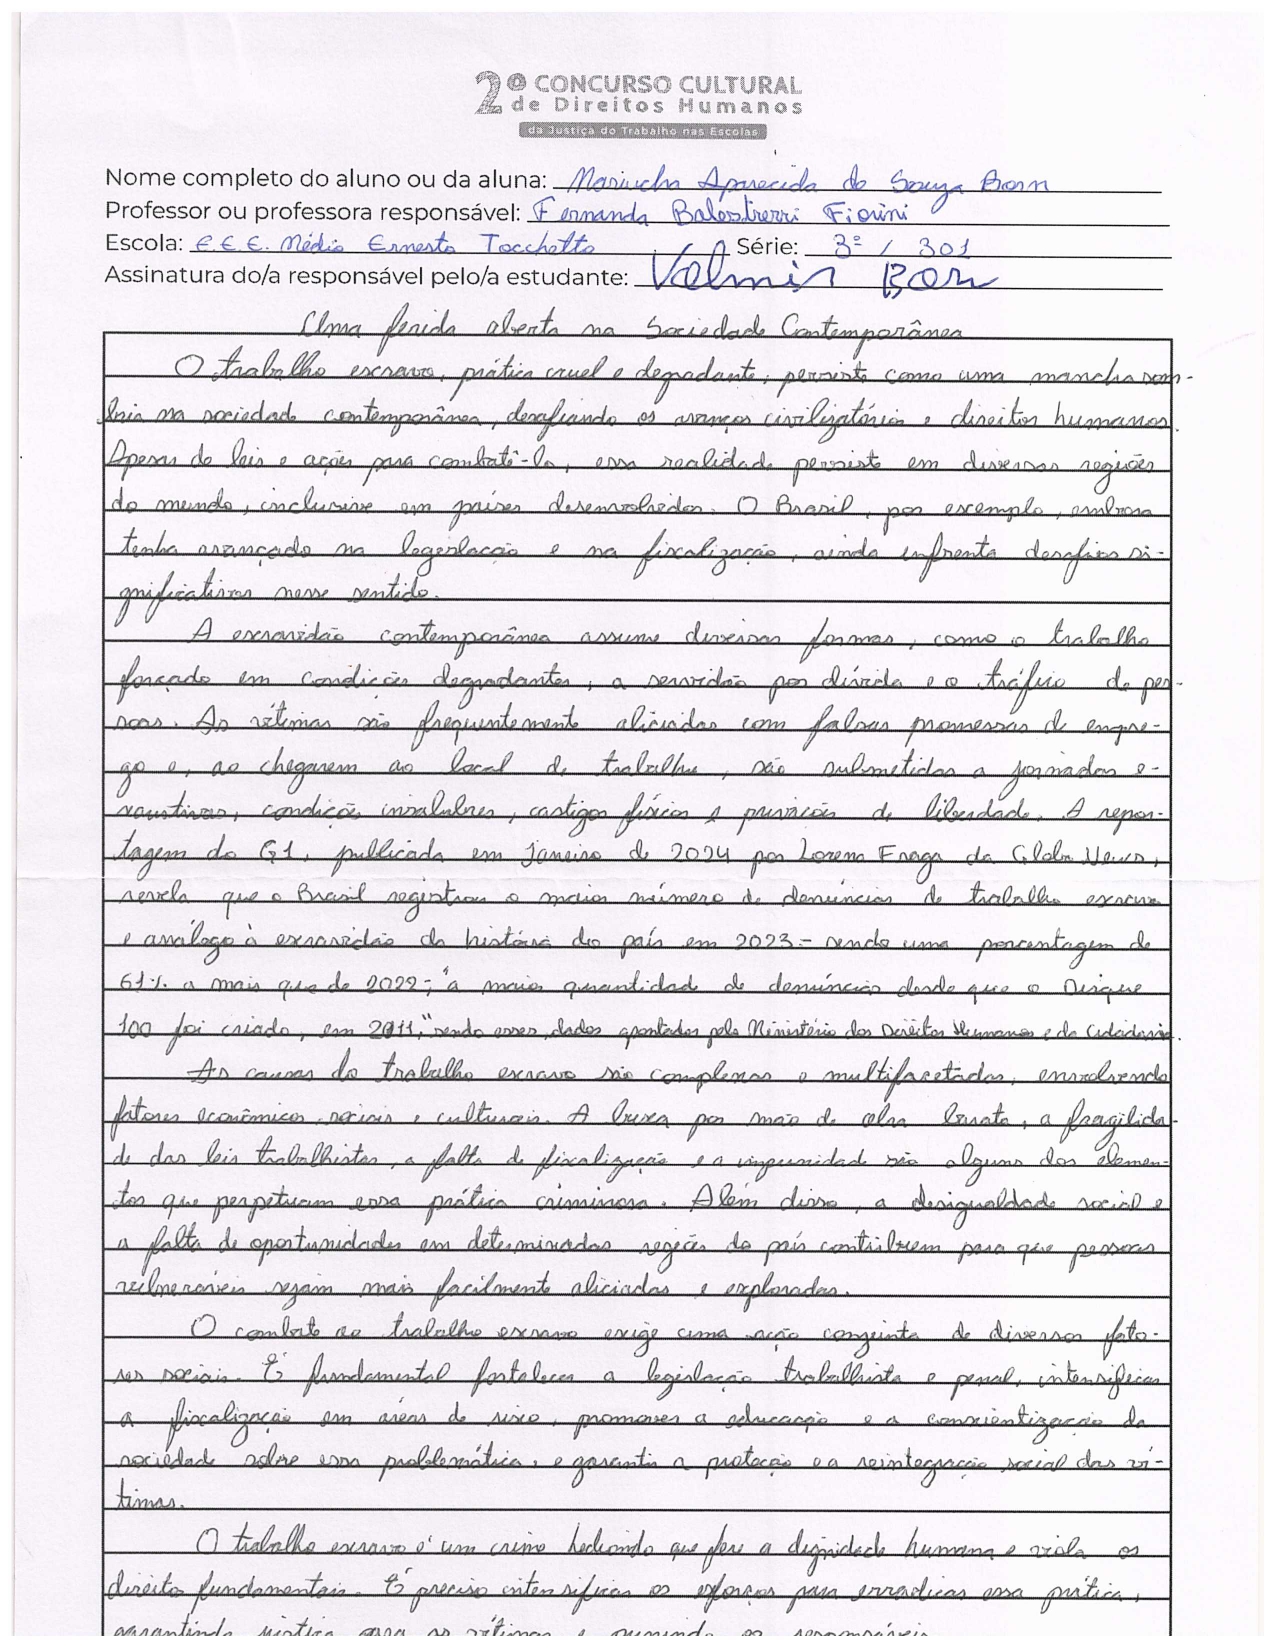 2º CONCURSO CULTURAL
de Direitos Humanos
da Justiça do Trabalho nas Escolas
Nome completo do aluno ou da aluna: Mariucha Aparecida de Souza Born
Professor ou professora responsável: Fernanda Balestrerri Fiorini
Escola: E.E.E. Médio Ernesto Tocchetto Série: 3ª / 301
Assinatura do/a responsável pelo/a estudante: Valmir Born
Uma ferida aberta na Sociedade Contemporânea
O trabalho escravo, prática cruel e degradante, persiste como uma mancha som-
bria na sociedade contemporânea, desafiando os avanços civilizatórios e direitos humanos.
Apesar de leis e ações para combatê-lo, essa realidade persiste em diversas regiões
do mundo, inclusive em países desenvolvidos. O Brasil, por exemplo, embora
tenha avançado na legislação e na fiscalização, ainda enfrenta desafios si-
gnificativos nesse sentido.
A escravidão contemporânea assume diversas formas, como o trabalho
forçado em condições degradantes, a servidão por dívida e o tráfico de pes-
soas. As vítimas são frequentemente aliciadas com falsas promessas de empre-
go e, ao chegarem ao local de trabalho, são submetidas a jornadas e-
xaustivas, condições insalubres, castigos físicos e privações de liberdade. A repor-
tagem do G1, publicada em janeiro de 2024 por Lorena Fraga da Globo News,
revela que o Brasil registrou o maior número de denúncias de trabalho escravo
e análogo à escravidão da história do país em 2023 - sendo uma porcentagem de
61% a mais que de 2022; "a maior quantidade de denúncias desde que o Disque
100 foi criado, em 2011," sendo esses dados apontados pelo Ministério dos Direitos Humanos e da Cidadania.
As causas do trabalho escravo são complexas e multifacetadas, envolvendo
fatores econômicos, sociais e culturais. A busca por mão de obra barata, a fragilida-
de das leis trabalhistas, a falta de fiscalização e a impunidade são alguns dos elemen-
tos que perpetuam essa prática criminosa. Além disso, a desigualdade social e
a falta de oportunidades em determinadas regiões do país contribuem para que pessoas
vulneráveis sejam mais facilmente aliciadas e exploradas.
O combate ao trabalho escravo exige uma ação conjunta de diversos fato-
res sociais. É fundamental fortalecer a legislação trabalhista e penal, intensificar
a fiscalização em áreas de risco, promover a educação e a conscientização da
sociedade sobre essa problemática, e garantir a proteção e a reintegração social das ví-
timas.
O trabalho escravo é um crime hediondo que fere a dignidade humana e viola os
direitos fundamentais. É preciso intensificar os esforços para erradicar essa prática,
garantindo justiça para as vítimas e punindo os responsáveis.